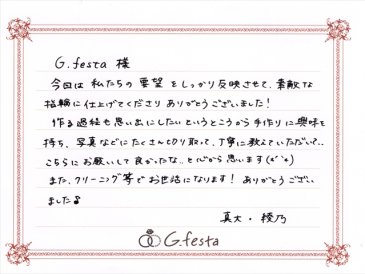 G.festa 様
今回は 私たちの 要望 をしっかり反映させて、素敵な
指輪に仕上げてくださり ありがとうございました!
作る過程も思い出にしたいというところから手作りに興味を
持ち、写真などにたくさん切り取って、丁寧に教えていただいて、
こちらにお願いして良かったな、と心から思います(*^^*)
また、クリーニング等でお世話になります! ありがとうござい
ました♪
真大・綾乃
G.festa